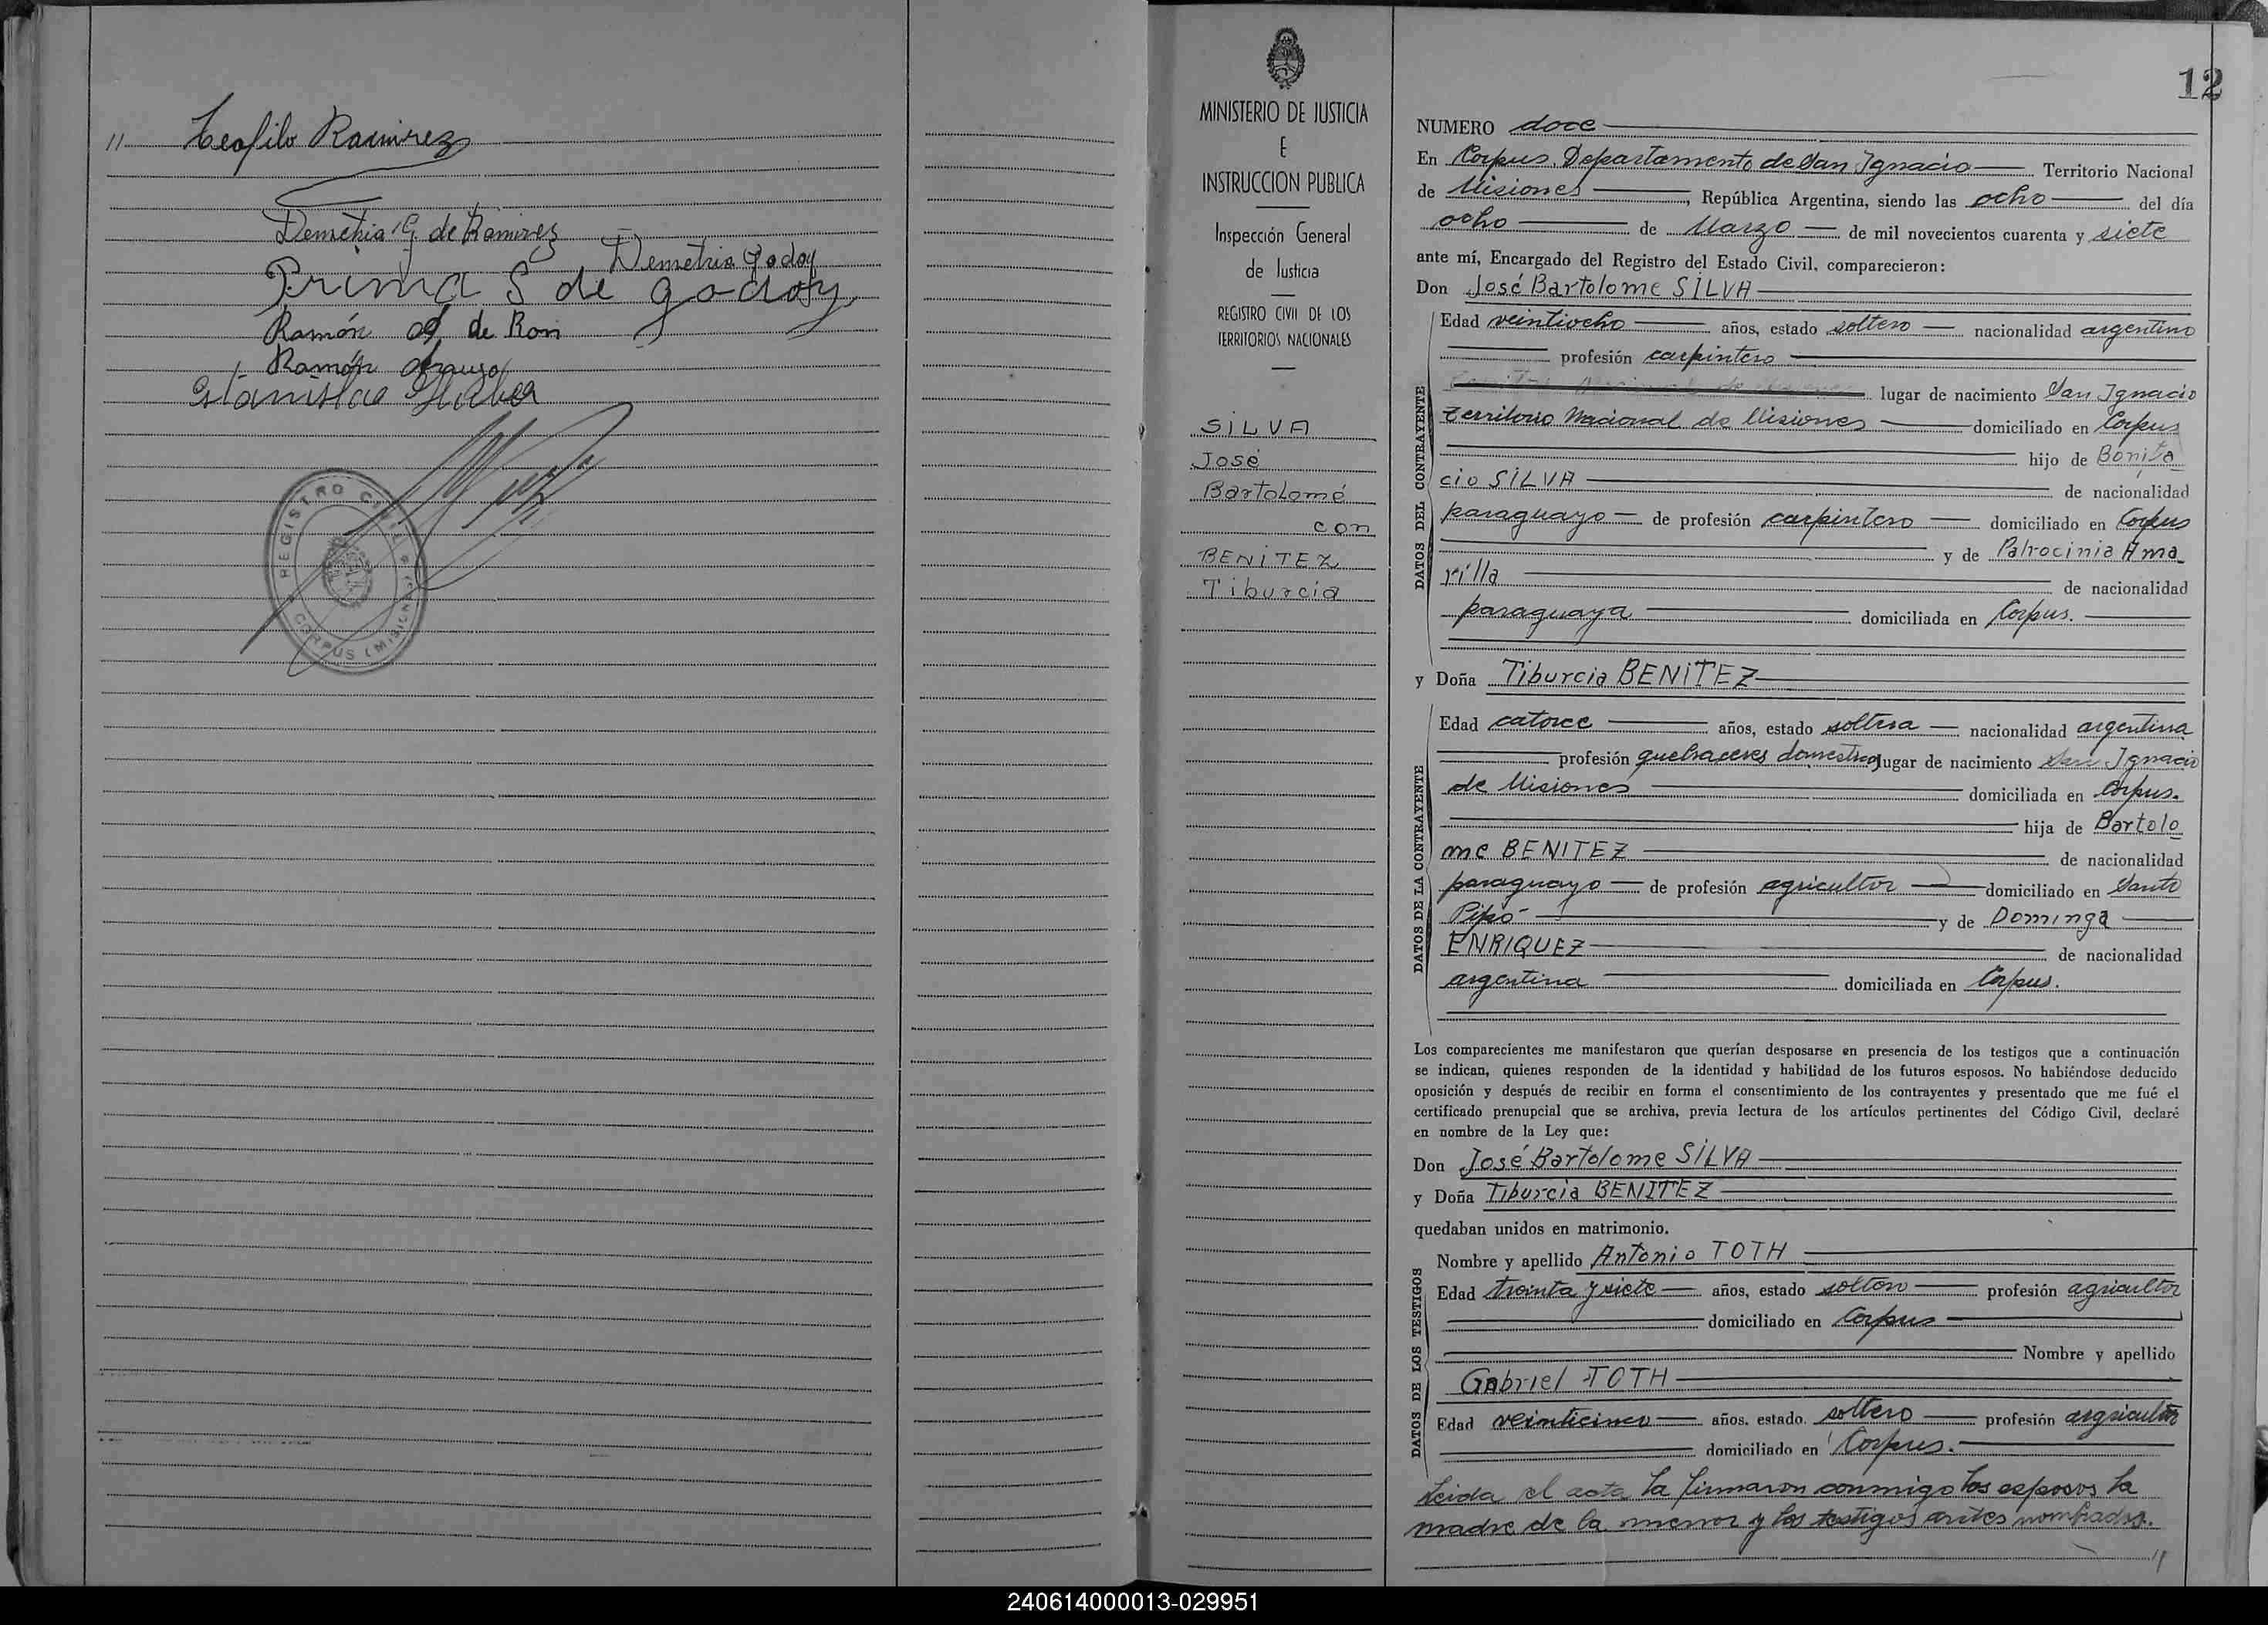 11 Teofilo Ramirez
Demetria G. de Ramirez
Demetria Godoy
Prima S de godoy
Ramón de Ron
Ramón Araujo
Estanislao
REGISTRO CIVIL
CORPUS (MISIONES)
MINISTERIO DE JUSTICIA
E
INSTRUCCION PUBLICA
Inspección General
de Justicia
REGISTRO CIVIL DE LOS
TERRITORIOS NACIONALES
SILVA
José
Bartolomé
con
BENITEZ
Tiburcia
12
NUMERO doce
En Corpus, Departamento de San Ignacio Territorio Nacional
de Misiones, República Argentina, siendo las ocho del día
ocho de Marzo de mil novecientos cuarenta y siete
ante mí, Encargado del Registro del Estado Civil, comparecieron:
Don José Bartolome SILVA
DATOS DEL CONTRAYENTE
Edad veintiocho años, estado soltero nacionalidad argentino
profesión carpintero
lugar de nacimiento San Ignacio
Territorio Nacional de Misiones domiciliado en Corpus
hijo de Bonifa
cio SILVA de nacionalidad
paraguayo de profesión carpintero domiciliado en Corpus
y de Patrocinia Ama
rilla de nacionalidad
paraguaya domiciliada en Corpus.
y Doña Tiburcia BENITEZ
DATOS DE LA CONTRAYENTE
Edad catorce años, estado soltera nacionalidad argentina
profesión quehaceres domesticos lugar de nacimiento San Ignacio
de Misiones domiciliada en Corpus.
hija de Bartolo
me BENITEZ de nacionalidad
paraguayo de profesión agricultor domiciliado en Santo
Pipó y de Dominga
ENRIQUEZ de nacionalidad
argentina domiciliada en Corpus.
Los comparecientes me manifestaron que querían desposarse en presencia de los testigos que a continuación
se indican, quienes responden de la identidad y habilidad de los futuros esposos. No habiéndose deducido
oposición y después de recibir en forma el consentimiento de los contrayentes y presentado que me fué el
certificado prenupcial que se archiva, previa lectura de los artículos pertinentes del Código Civil, declaré
en nombre de la Ley que:
Don José Bartolome SILVA
y Doña Tiburcia BENITEZ
quedaban unidos en matrimonio.
DATOS DE LOS TESTIGOS
Nombre y apellido Antonio TOTH
Edad treinta y siete años, estado soltero profesión agricultor
domiciliado en Corpus
Nombre y apellido
Gabriel TOTH
Edad veinticinco años, estado soltero profesión agricultor
domiciliado en Corpus.
Leida el acta la firmaron conmigo los esposos la
madre de la menor y los testigos antes nombrados.
11
240614000013-029951